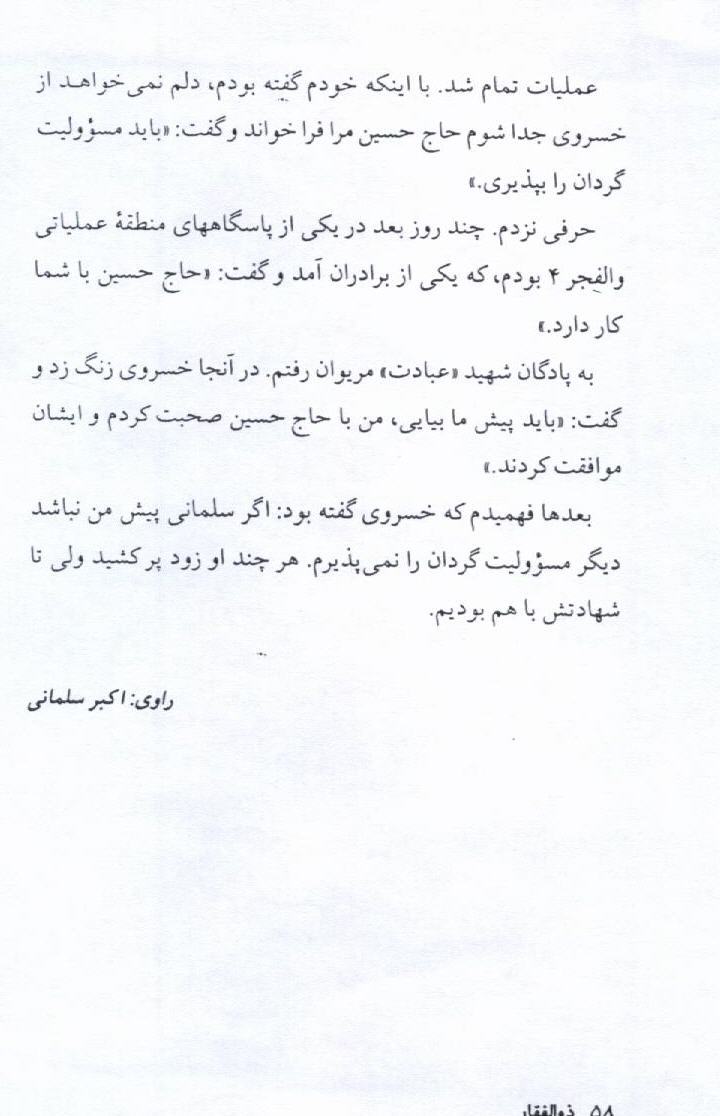 عملیات تمام شد. با اینکه خودم گفته بودم، دلم نمی‌خواهد از
خسروی جدا شوم حاج حسین مرا فرا خواند و گفت: «باید مسؤولیت
گردان را بپذیری.»
حرفی نزدم. چند روز بعد در یکی از پاسگاههای منطقهٔ عملیاتی
والفجر ۴ بودم، که یکی از برادران آمد و گفت: «حاج حسین با شما
کار دارد.»
به پادگان شهید «عبادت» مریوان رفتم. در آنجا خسروی زنگ زد و
گفت: «باید پیش ما بیایی، من با حاج حسین صحبت کردم و ایشان
موافقت کردند.»
بعدها فهمیدم که خسروی گفته بود: اگر سلمانی پیش من نباشد
دیگر مسؤولیت گردان را نمی‌پذیرم. هر چند او زود پر کشید ولی تا
شهادتش با هم بودیم.
راوی: اکبر سلمانی
۵۸ ذوالفقار